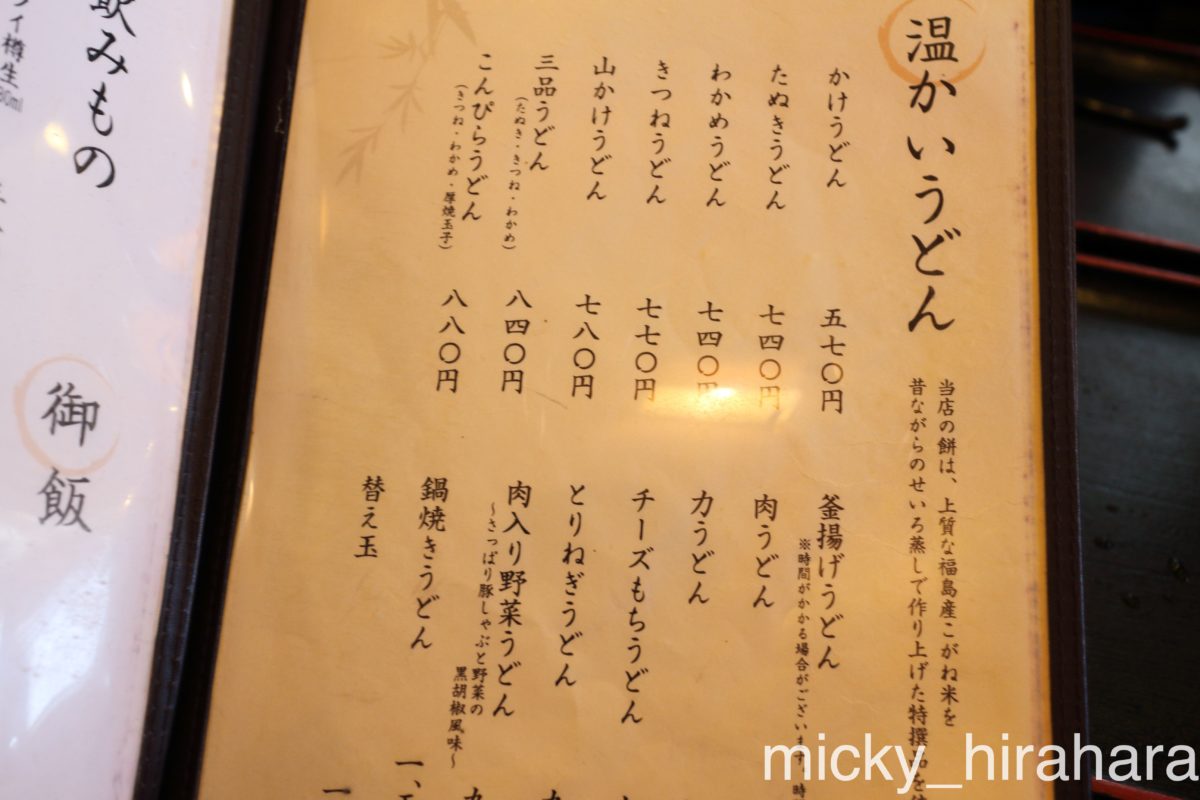 温かいうどん
当店の餅は、上質な福島産こがね米を
昔ながらのせいろ蒸しで作り上げた特撰品を
かけうどん 五七〇円
たぬきうどん 七四〇円
わかめうどん 七四〇円
きつねうどん 七七〇円
山かけうどん 七八〇円
三品うどん 八四〇円
（たぬき・きつね・わかめ）
こんぴらうどん 八八〇円
（きつね・わかめ・厚焼玉子）
釜揚げうどん
※時間がかかる場合がございます。時
肉うどん
力うどん
チーズもちうどん
とりねぎうどん
肉入り野菜うどん
〜さっぱり豚しゃぶと野菜の
黒胡椒風味〜
鍋焼きうどん 一、
替え玉
飲みもの
樽生
御飯
micky_hirahara